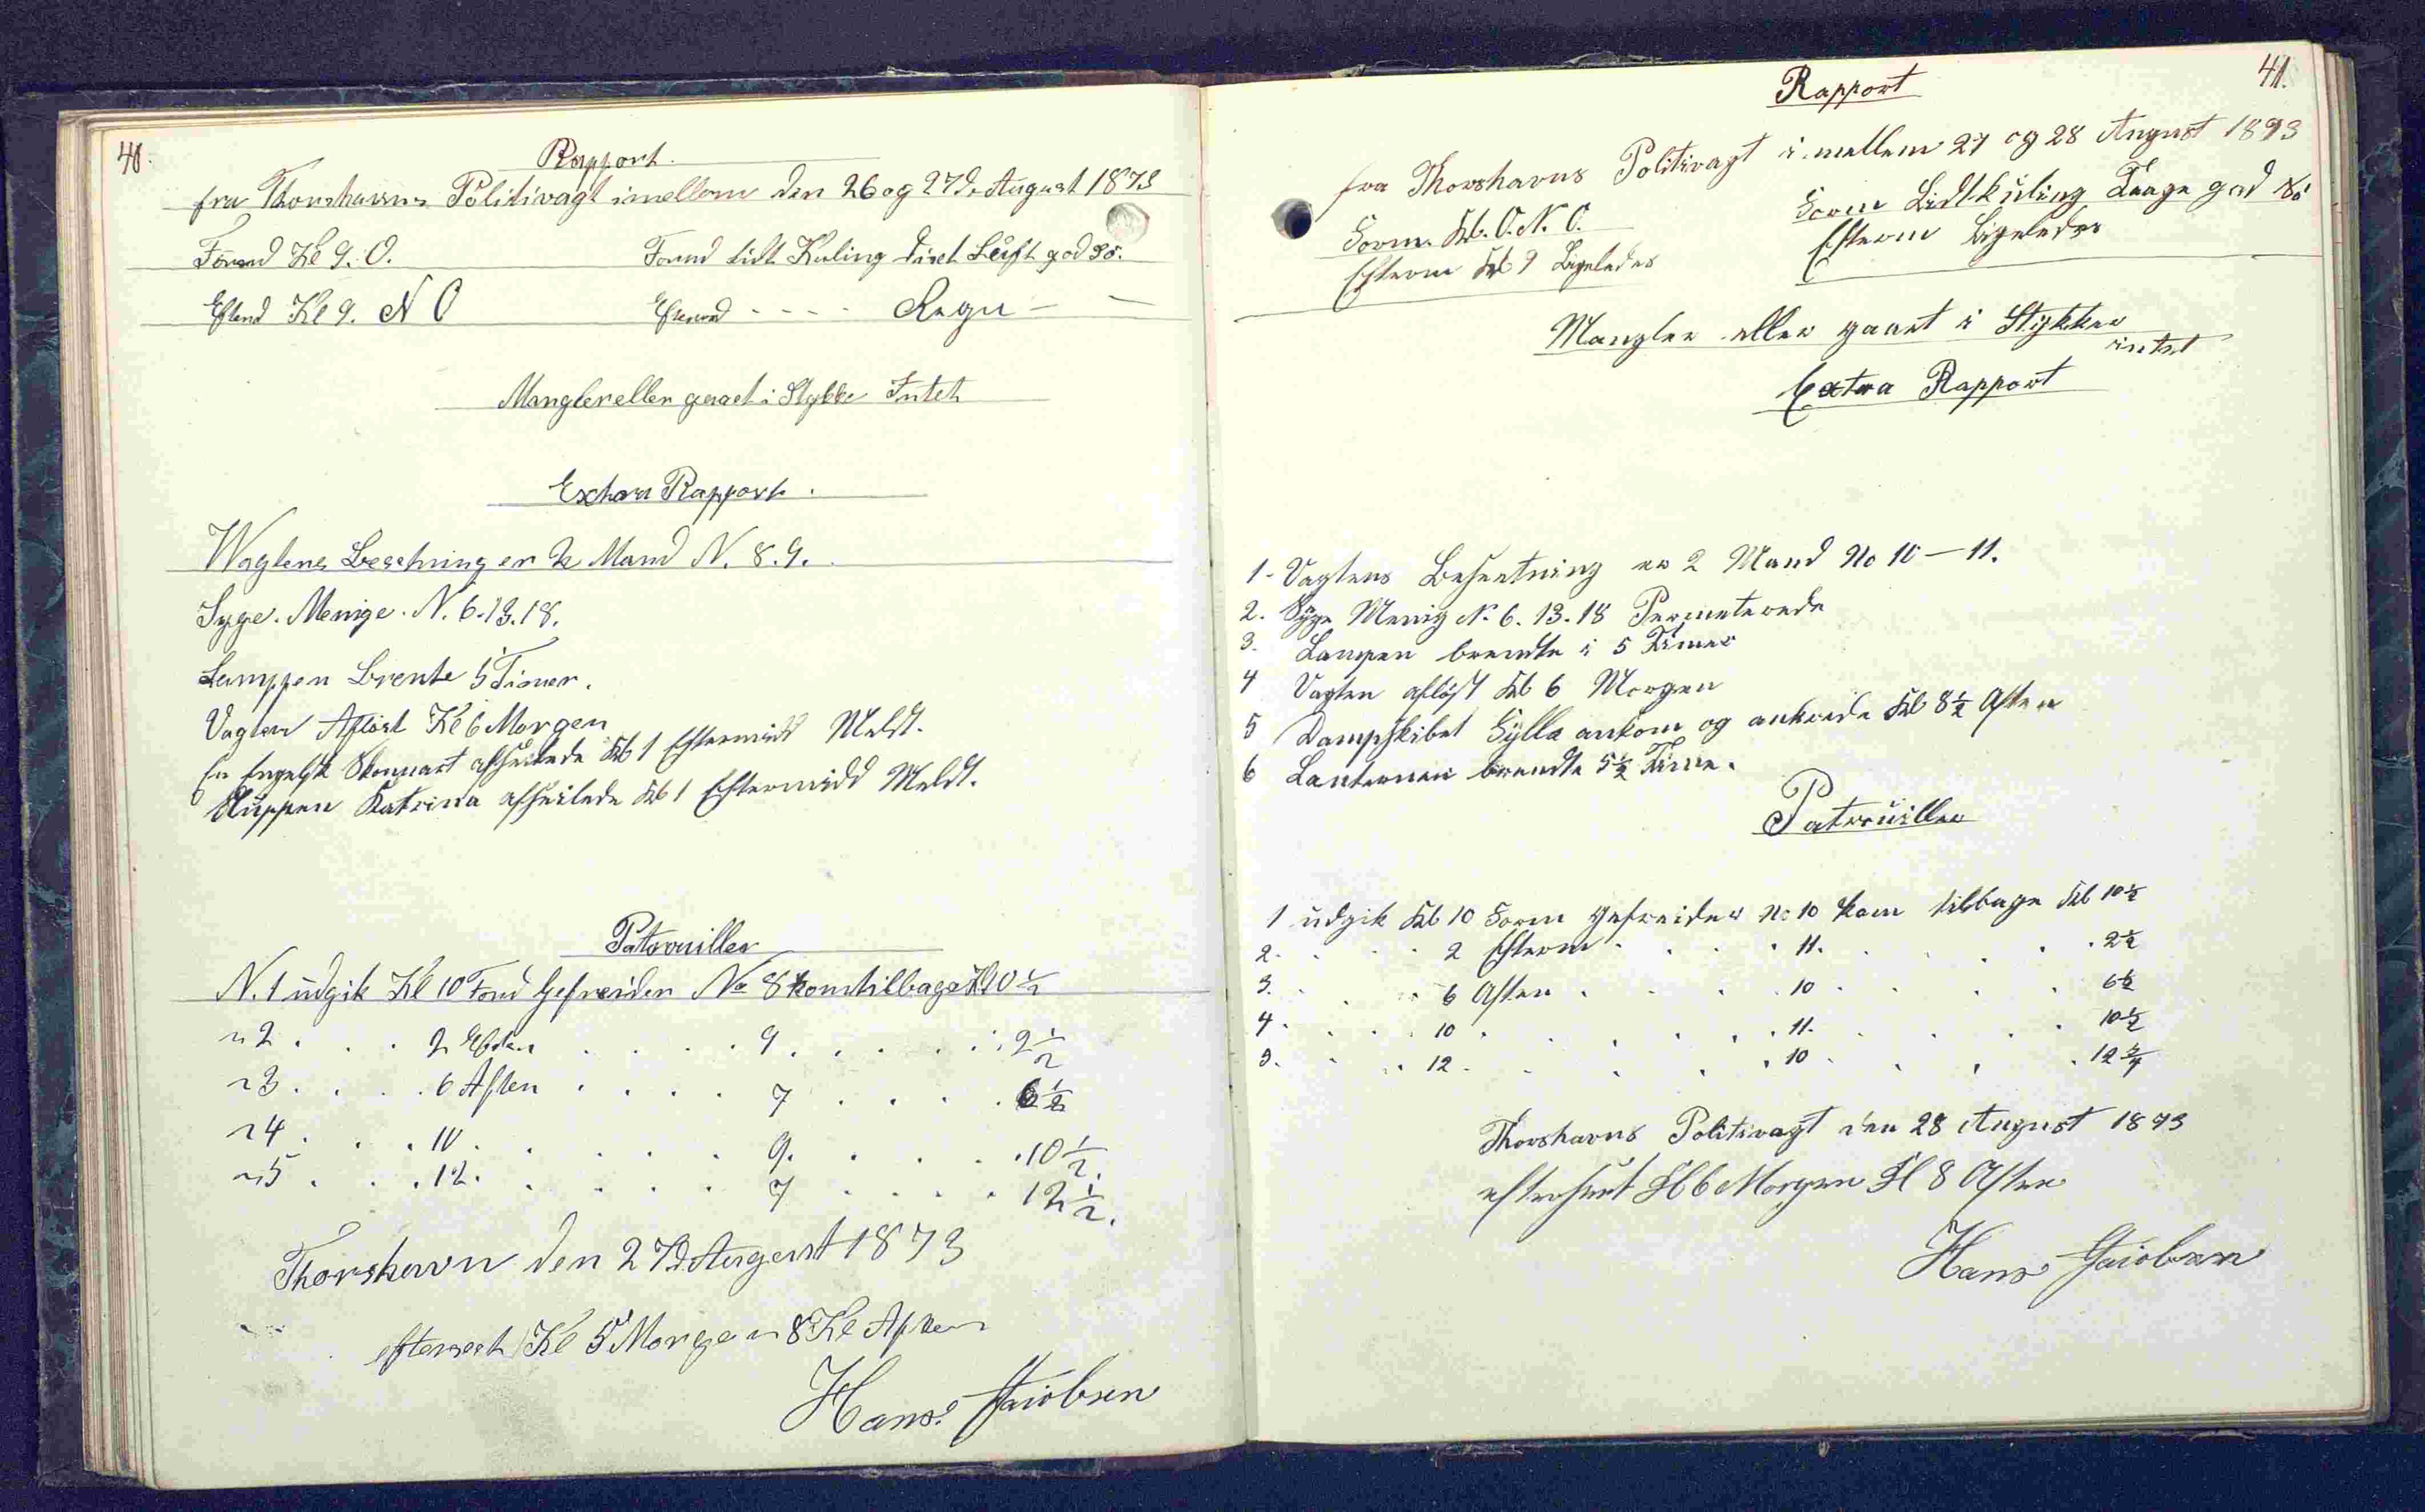 40.
Rapport.
fra Thorshavns Politivagt imellem den 26 og 27de August 1873
Formd Kl 9. O.
Formd lidt Kuling Luft god Sö.
Eftmd Kl 9. N O
Eftermd - - - - Regn — —
Mangler eller gaaet i Stykke Intet
Extra Rapport.
Wagtens Besetning er 2 Mand N. 8. 9.
Syge. Menige. N. 6. 13. 18.
Lamppen Brente 5 Timer.
Vagten Aflöst Kl 6 Morgen
En Engelsk Skonnart afseilede Kl 1 Eftermidd Meldt.
Sluppen Katrina afseilede Kl 1 Eftermidd Meldt.
Patrouiller
N. 1 udgik Kl 10 Formd Gefreider No 8 kom tilbage Kl 10 1/2
" 2 . . . 2 . . . . 9 . . . . . 2 1/2
" 3 . . . 6 Aften . . . . 7 . . . . 6 1/2
" 4 . . . 10 . . . . . 9. . . . . 10 1/2.
" 5 . . . 12. . . . . 7 . . . . 12 1/2.
Thorshavn den 27d August 1873
efterseet Kl 5 Morgen 8 Kl Aften
Hans Jacobsen
41.
Rapport
fra Thorshavns Politivagt i mellem 27 og 28 August 1873
Form. Kl. O. N. O.
Form Lidt kuling Taage god Sö
Efterm Kl 9 Ligeledes
Efterm Ligeledes
Mangler eller gaaet i Stykker
intet
Extra Rapport
1- Vagtens Besetning er 2 Mand No 10 — 11.
2. Syge Menig N. 6. 13. 18 Permeterede
3. Lampen brendte i 5 Timer
4 Vagten aflöst Kl 6 Morgen
5 Dampskibet Fylla ankom og ankrede Kl 8 1/2 Aften
6 Lanternen brendte 5 1/2 Time.
Patrouiller
1 udgik Kl 10 Form gefreider No 10 kom tilbage Kl 10 1/2
2. . . . 2 Efterm . . . 11. . . . . 2 1/2
3. . . . 6 Aften . . . 10 . . . . 6 1/2
4. . . . 10 . . . . 11. . . . . 10 1/2
5. . . . 12. . . . . 10 . . . . 12 3/4
Thorshavns Politivagt den 28 August 1873
efterseet Kl 6 Morgen Kl 8 Aften
Hans Jacobsen